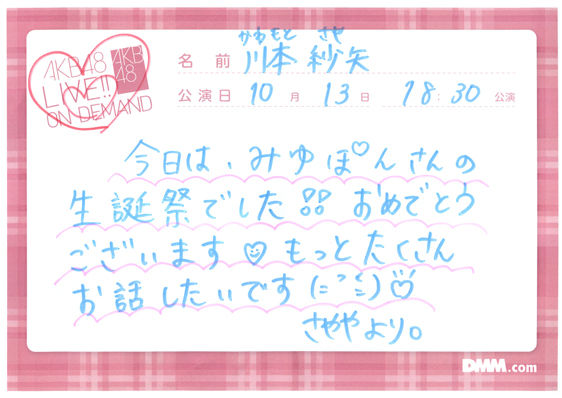 AKB48
LIVE!!
ON DEMAND
AKB
48
かわもと さや
名前 川本 紗矢
公演日 10月 13日 18:30 公演
今日は、みゆぽんさんの
生誕祭でした!! おめでとう
ございます♡もっとたくさん
お話したいです(=´ー`=)♡
さややより。
DMM.com